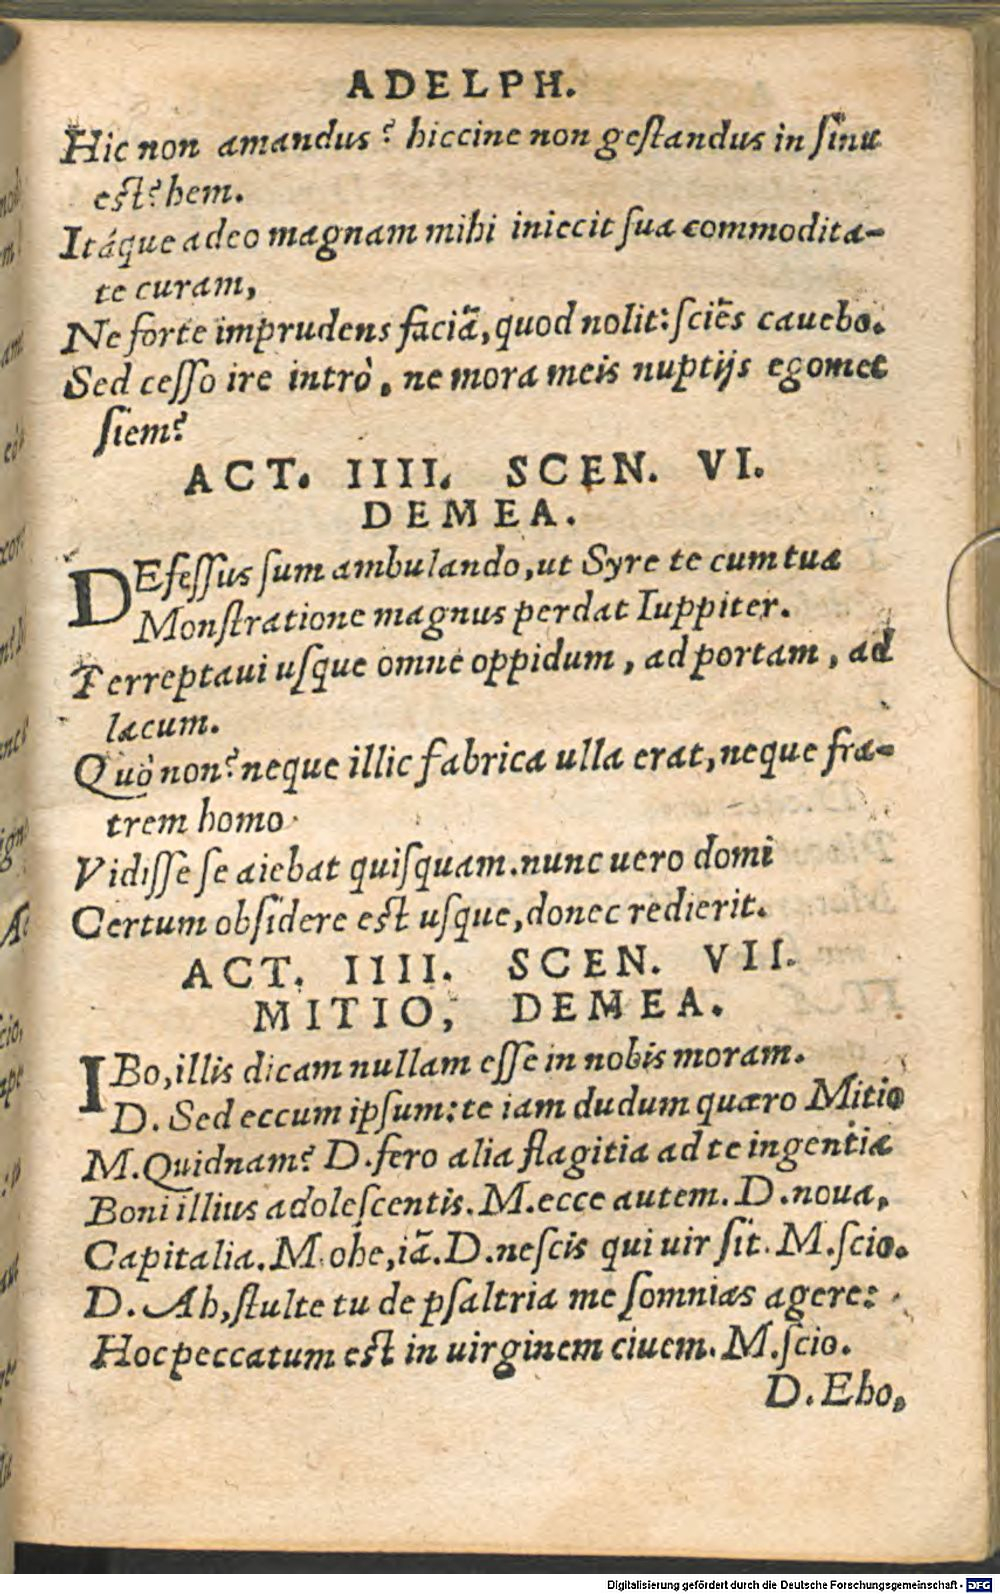 ADELPH.
Hic non amandus? hiccine non geſtandus in ſinu
eſt? hem.
Itáque adeo magnam mihi iniecit ſua commodita-
te curam,
Ne forte imprudens faciā, quod nolit: ſciēs cauebo.
Sed ceſſo ire intrò, ne mora meis nuptijs egomet
ſiem?
ACT. IIII. SCEN. VI.
DEMEA.
DEfeſſus ſum ambulando, ut Syre te cum tua
Monſtratione magnus perdat Iuppiter.
Perreptaui uſque omne oppidum, ad portam, ad
lacum.
Quò non? neque illic fabrica ulla erat, neque fra-
trem homo
Vidiſſe ſe aiebat quiſquam. nunc uero domi
Certum obſidere eſt uſque, donec redierit.
ACT. IIII. SCEN. VII.
MITIO, DEMEA.
IBo, illis dicam nullam eſſe in nobis moram.
D. Sed eccum ipſum: te iam dudum quæro Mitio
M. Quidnam? D. fero alia flagitia ad te ingentia
Boni illius adoleſcentis. M. ecce autem. D. noua,
Capitalia. M. ohe, iā. D. neſcis qui uir ſit. M. ſcio.
D. Ah, ſtulte tu de pſaltria me ſomnias agere:
Hoc peccatum eſt in uirginem ciuem. M. ſcio.
D. Eho,
Digitalisierung gefördert durch die Deutsche Forschungsgemeinschaft - DFG